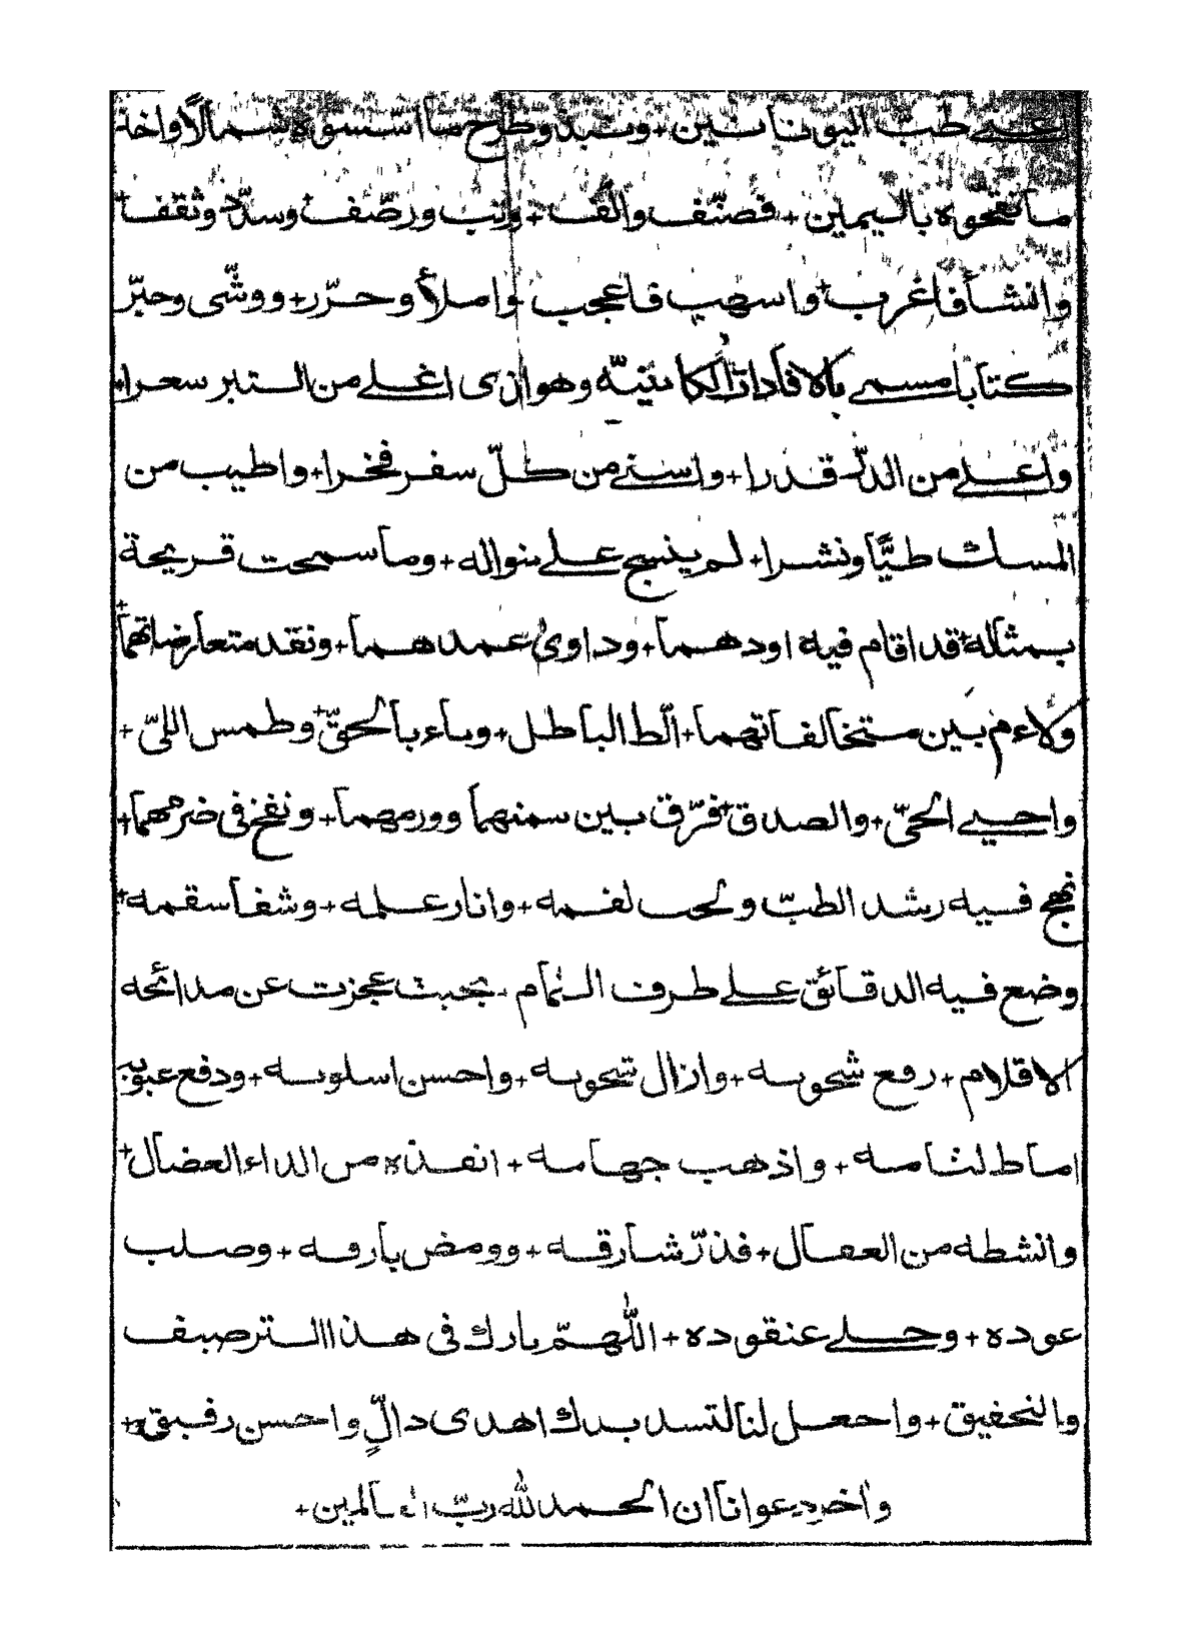 على طبّ اليونانيين + ونبذ وطرح ما اسسوه شمالاً واخذ
ما نقحوه باليمين + فصنّف والّف + ورتب ورصّف وسدّد وثقف +
وانشأ فاغرب + واسهب فاعجب واملأ وحرّر + ووشّى وحبّر
كتابا مسمى بالافادات الكا وهو ازى اغلى من التبر سعرا +
واعلى من الدرّ قدرا + واسنى من كلّ سفر فخرا + واطيب من
المسك طيّا ونشرا + لم ينسج على منواله + وما سمحت قريحة
بمثاله + قد اقام فيه اودهما + وداوى عمدهما + ونقد متعارضاتهما +
ولاءم بين متخالفاتهما + الّط الباطل + وماء بالحقّ + وطمس اللىّ +
واحيى الحىّ + والصدق + فرّق بين سمنهما وورمهما + ونفخ فى ضرمهما +
نهج فيه رشد الطبّ ولحب لقمه + وانار علمه + وشفا سقمه +
وضع فيه الدقائق على طرف الثمام + بحيث عجزت عن مدائحه
الاقلام + رفع شحوبه + وازال شحوبه + واحسن اسلوبه + ودفع عيوبه
اماط لثامه + واذهب جهامه + انقذه من الداء العضال +
وانشطه من العقال + فذرّ شارقه + وومض بارقه + وصلب
عوده + وحلى عنقوده + اللّهمّ بارك فى هذا الترصيف
والتحقيق + واجعل لنا لتسديدك اهدى دالٍّ واحسن رفيق +
واخر دعوانا ان الحمد لله ربّ العالمين +